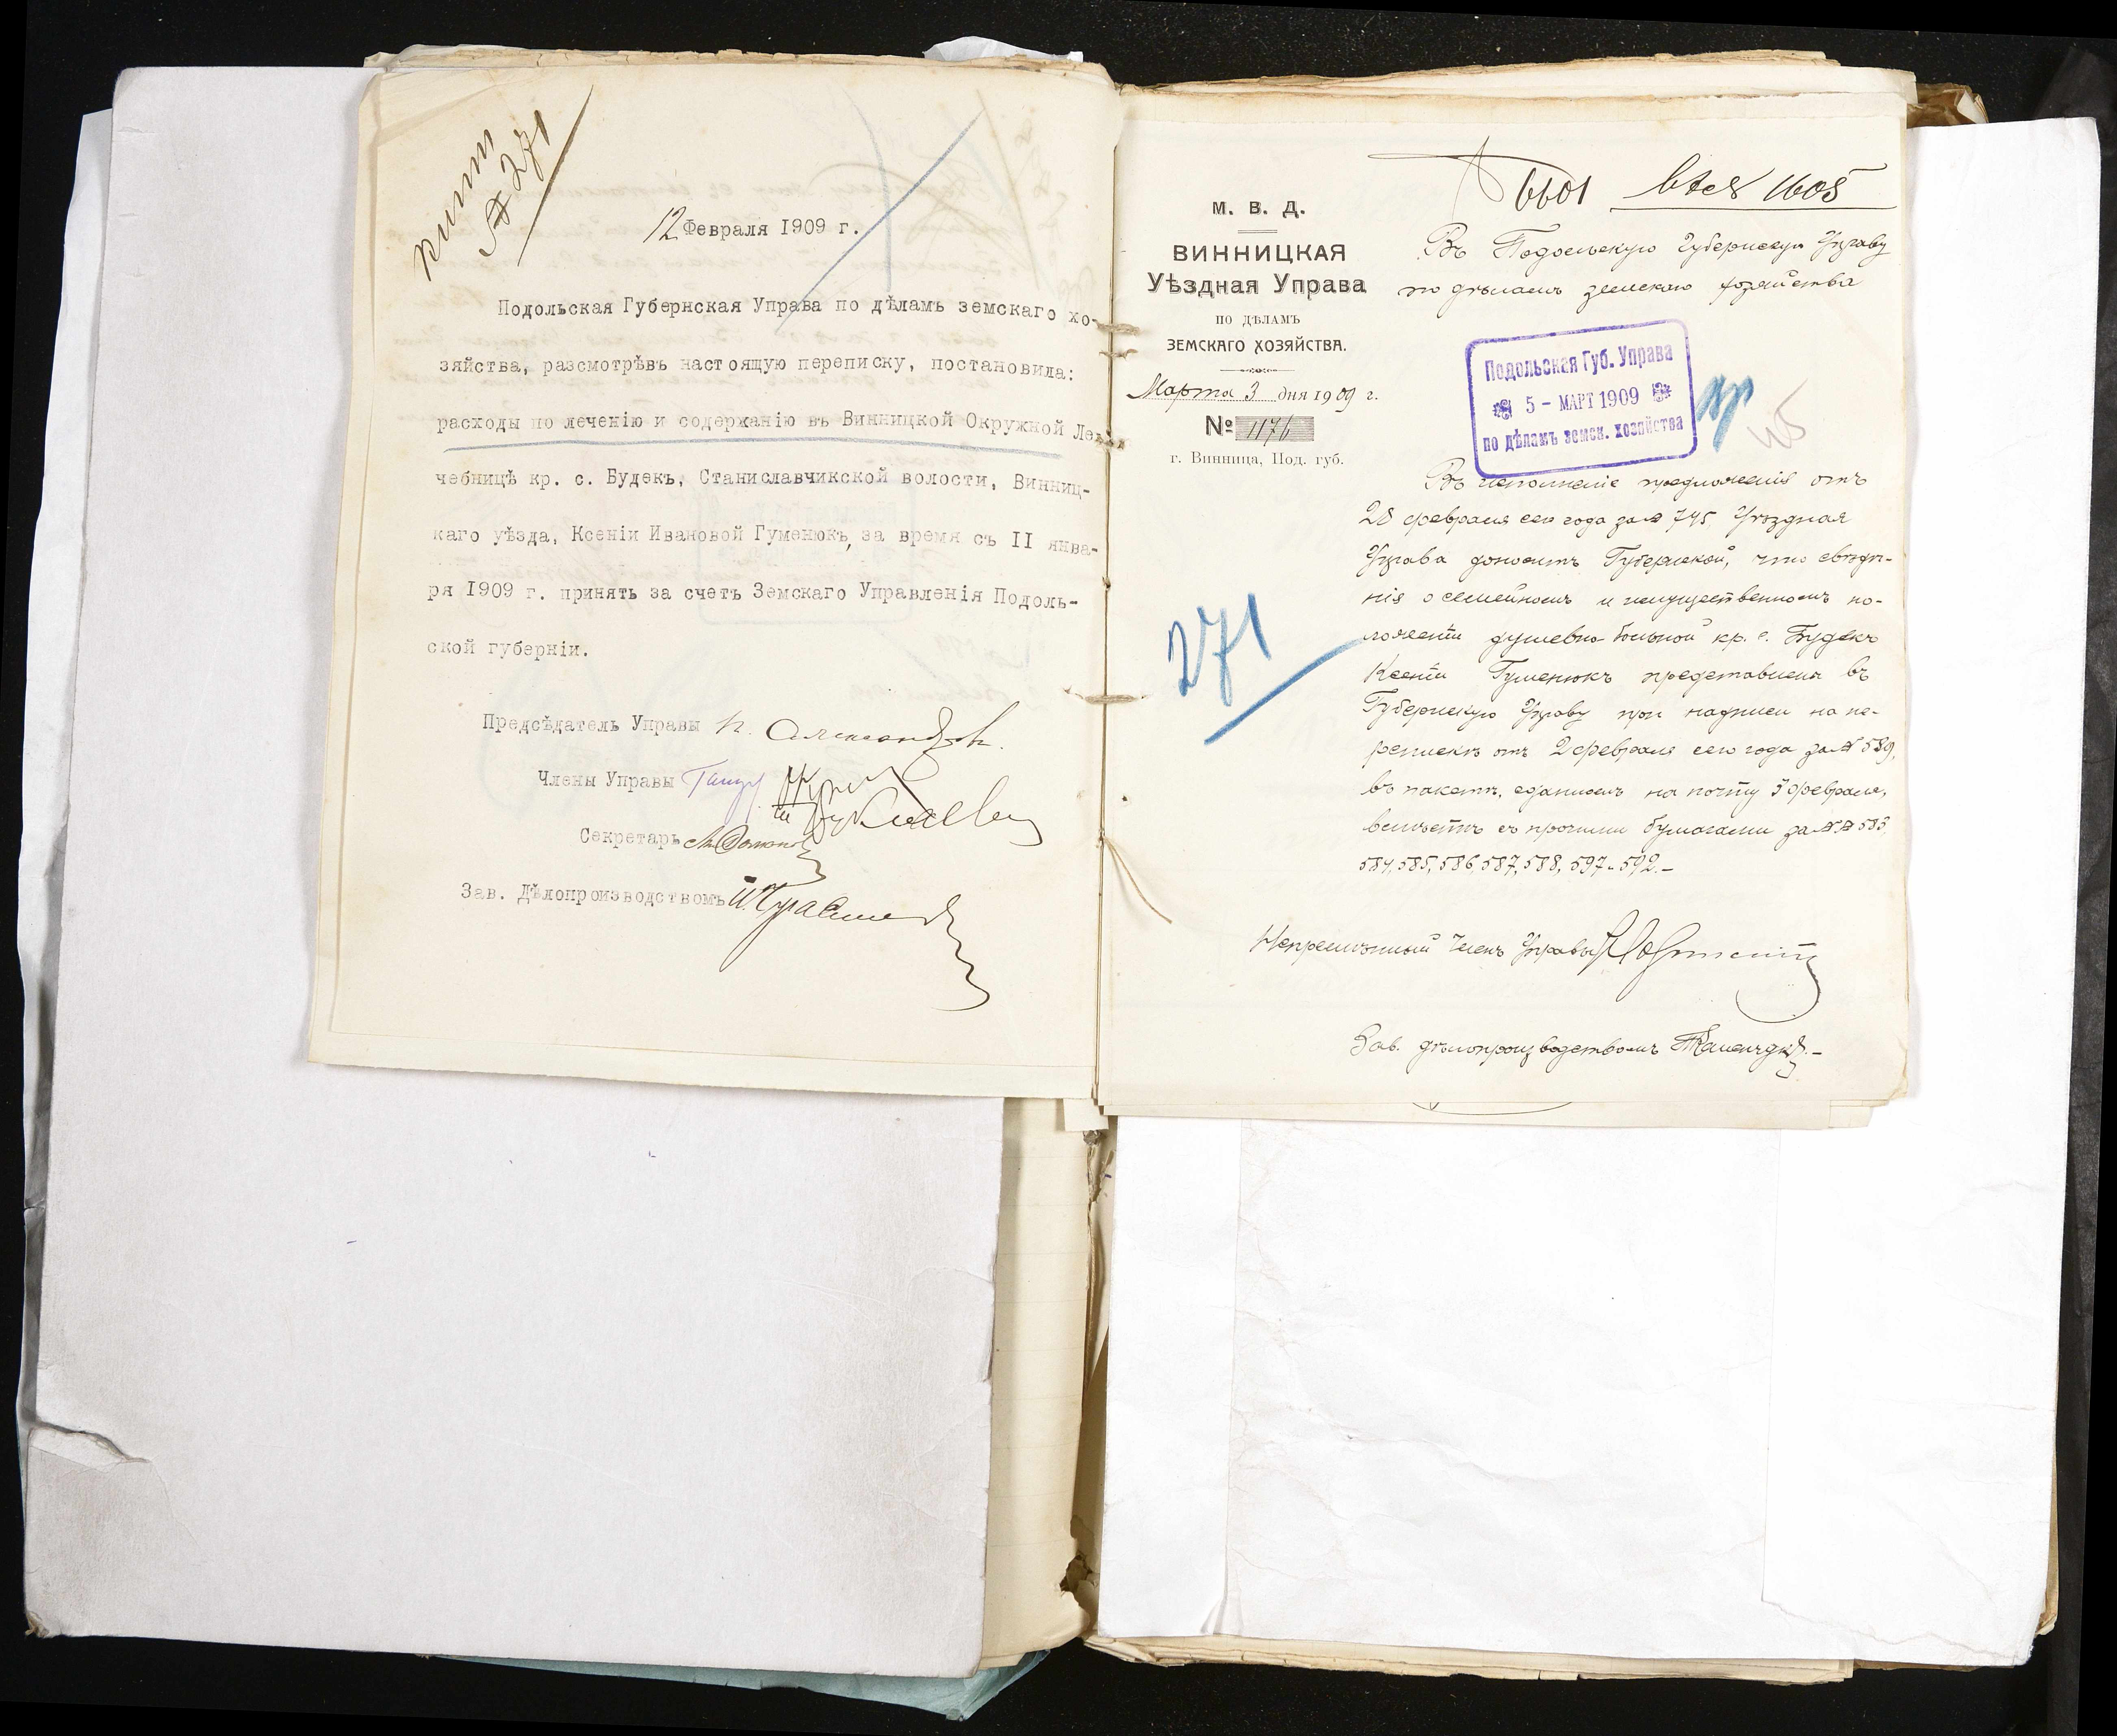 № 271
12 Февраля 1909 г.
Подольская Губернская Управа по дѣламъ земскаго хо-
зяйства, разсмотрѣвъ настоящую переписку, постановила:
расходы по леченію и содержанію въ Винницкой Окружной Ле-
чебницѣ кр. с. Будекъ, Станиславчикской волости, Винниц-
каго уѣзда, Ксеніи Ивановой Гуменюкъ, за время съ II янва-
ря 1909 г. принять за счетъ Земскаго Управленія Подоль-
ской губерніи.
Предсѣдатель Управы
Члены Управы
Секретарь
Зав. Дѣлопроизводствомъ
6601 1605
М. В. Д.
ВИННИЦКАЯ
Уѣздная Управа
ПО ДѢЛАМЪ
ЗЕМСКАГО ХОЗЯЙСТВА.
Марта 3 дня 1909 г.
№ 1176
г. Винница, Под. губ.
Въ Подольскую Губернскую Управу
по дѣламъ земскаго хозяйства
Подольская Губ. Управа
5 - МАРТ 1909
по дѣламъ земск. хозяйства
271
Въ исполненіе предложенія отъ
28 февраля сего года за № 745, Уѣздная
Управа доноситъ Губернской, что свѣдѣ-
нія о семейномъ и имущественномъ по-
ложеніи душевно-больной кр. с. Будекъ
Ксеніи Гуменюкъ представлены въ
Губернскую Управу при надписи на пе-
репискѣ отъ 2 февраля сего года за № 589,
въ пакетѣ, сданномъ на почту 3 февраля,
вмѣстѣ съ прочими бумагами за №№ 583,
584, 585, 586, 587, 588, 597 и 592.-
Непремѣнный Членъ Управы
Зав. дѣлопроизводствомъ